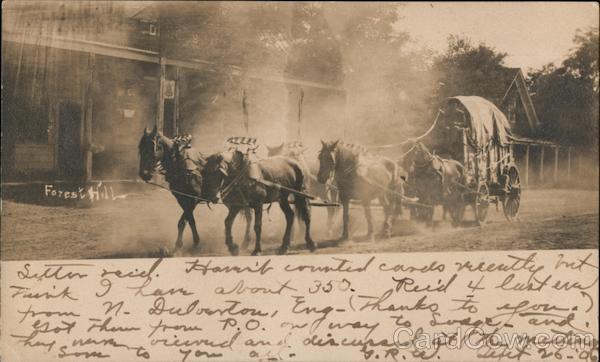 Forest Hill
Letter rec'd. Haven't counted cards recently but
think I have about 350. Rec'd 4 last eve
from N. Dulverton, Eng — (thanks to you.)
Got them from P.O. on way to and
they were viewed and
to you all. G.R.W.
CardCow.com